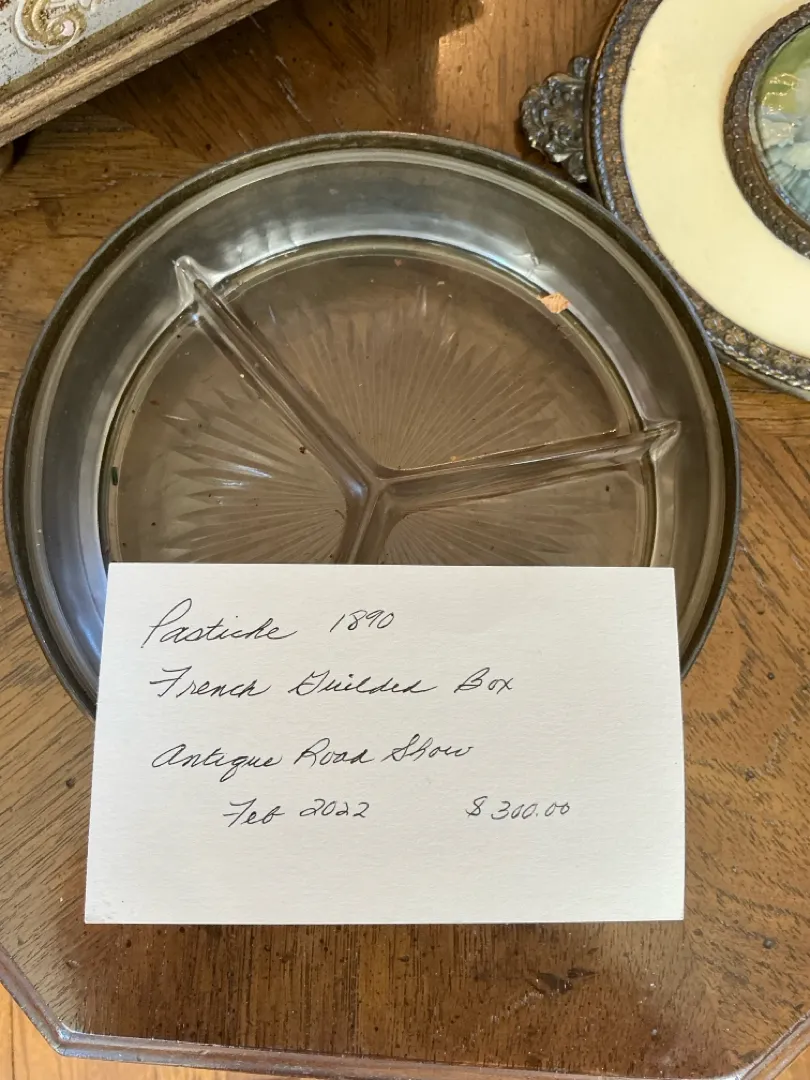 Pastiche 1890
French Guilded Box
Antique Road Show
Feb 2022 $300.00